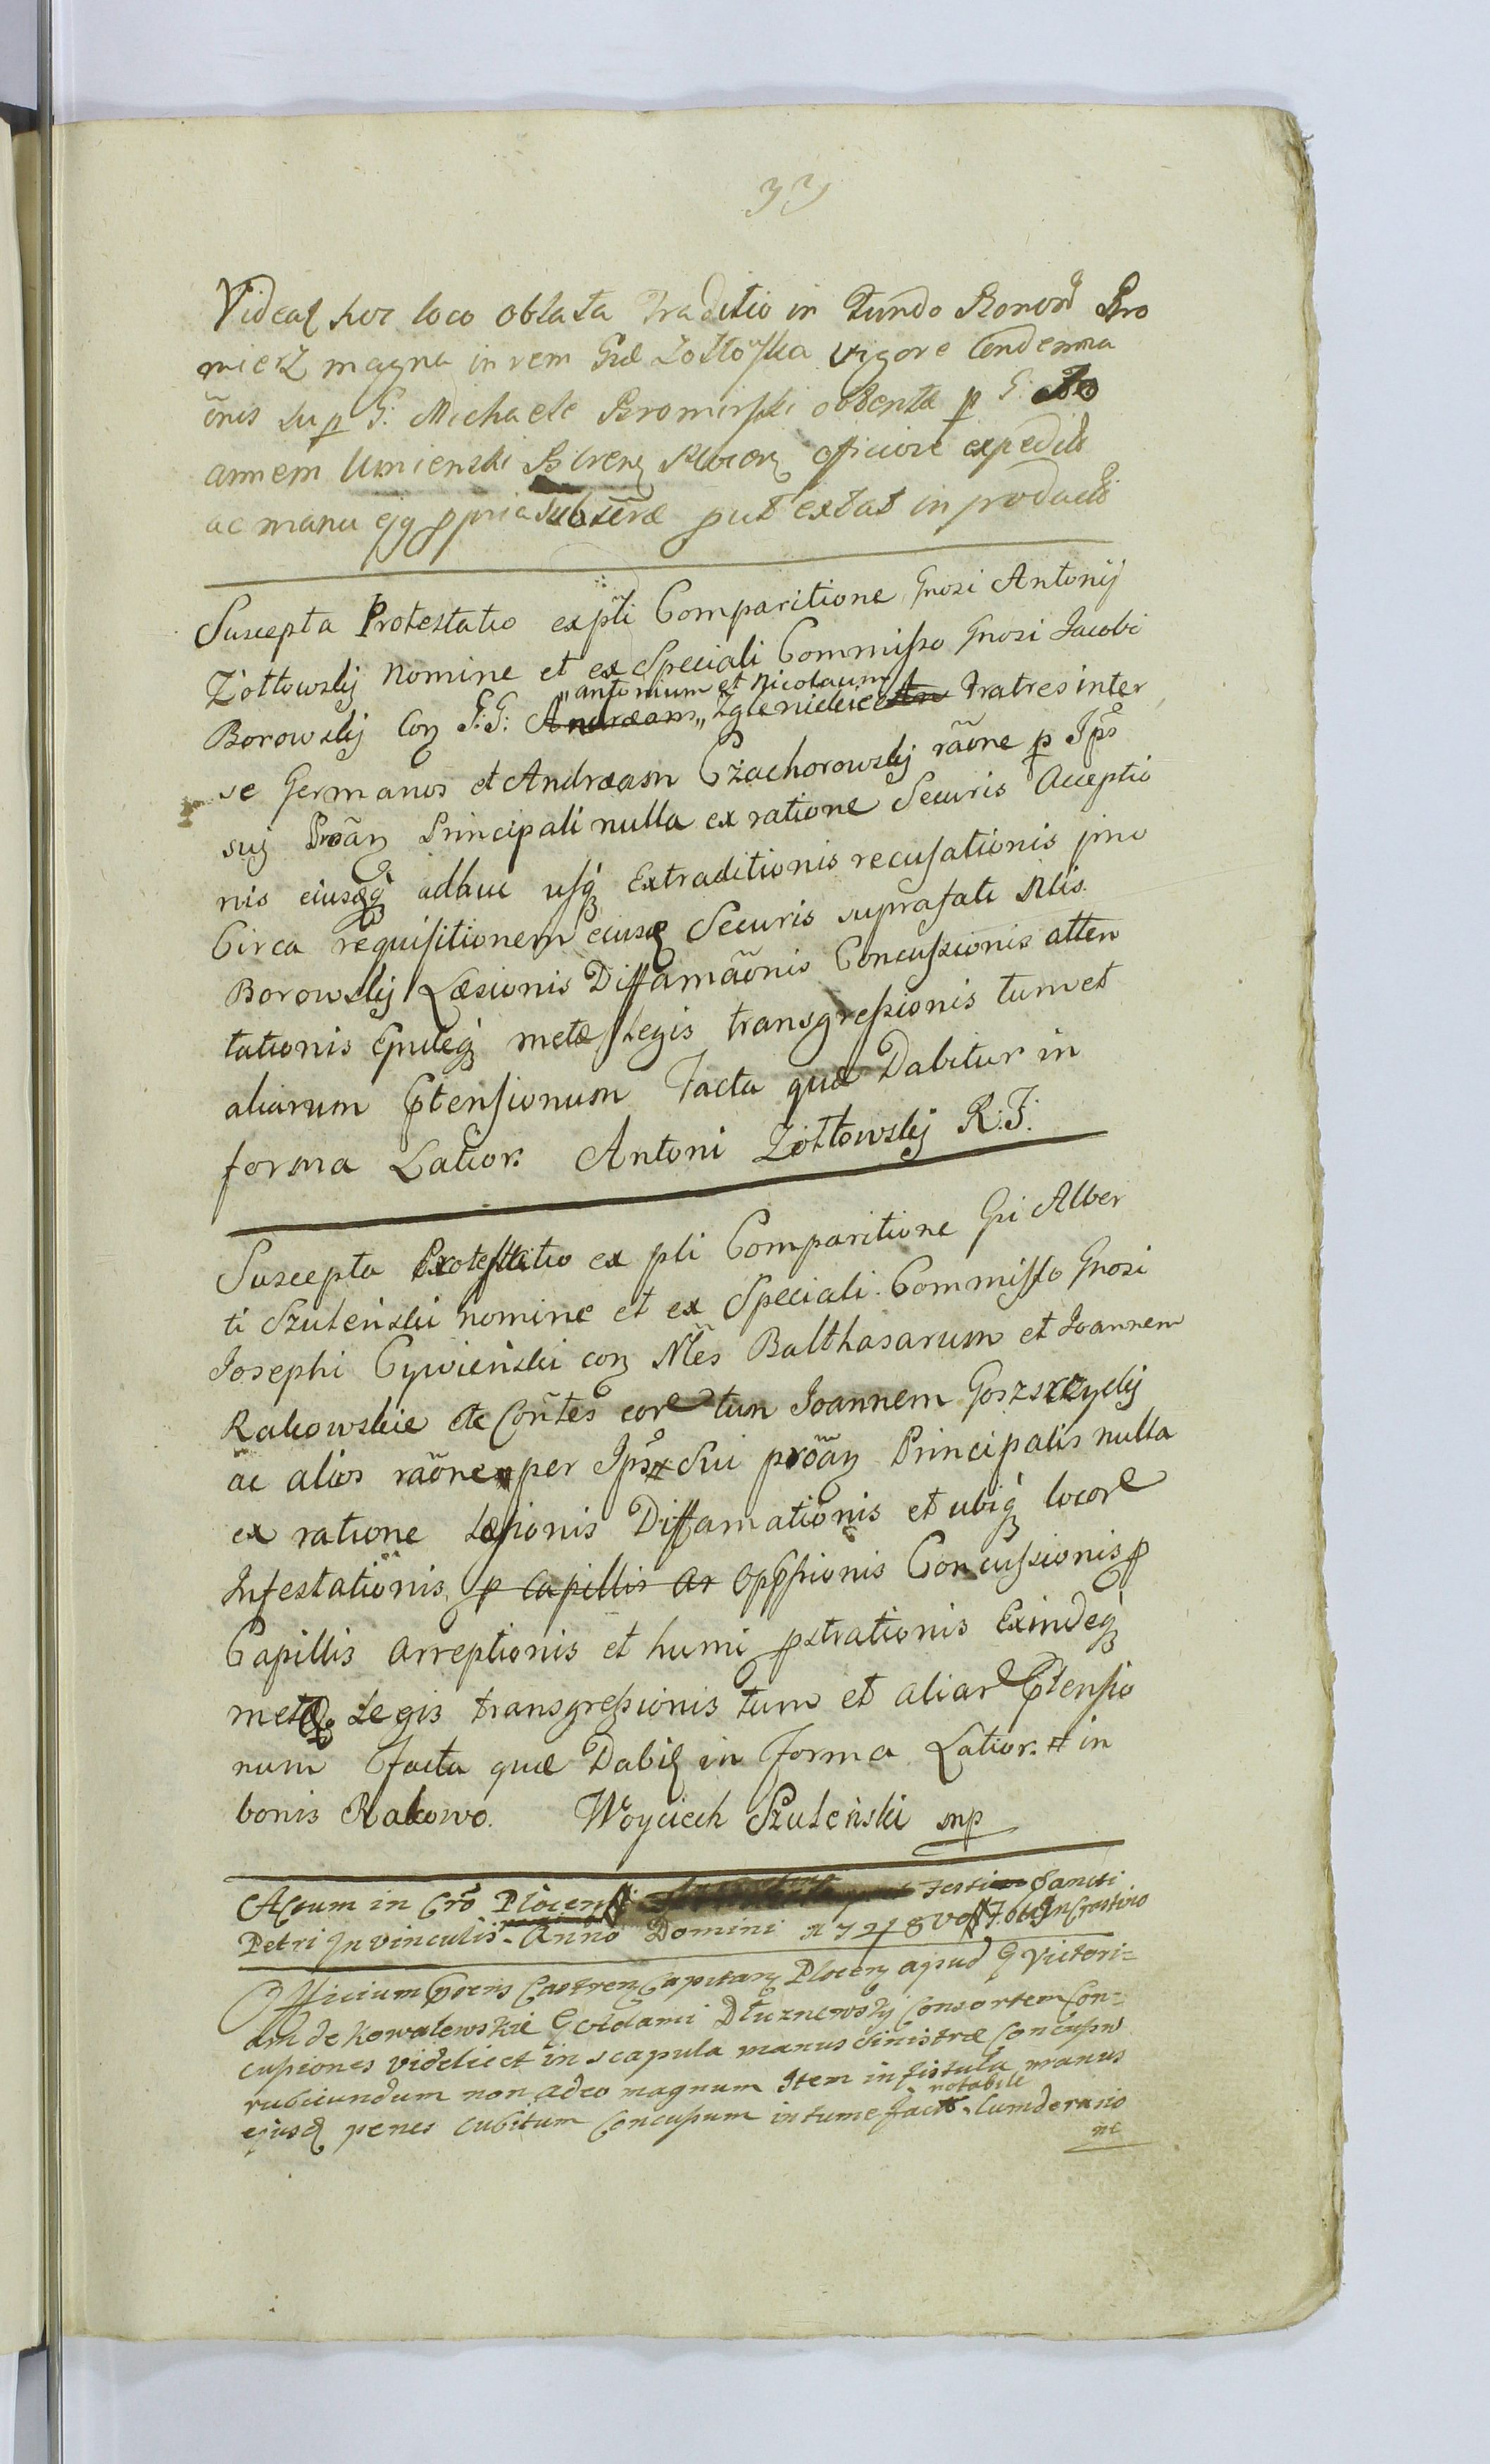 33
Videaꝶ hoc loco oblata Traditio in Fundo Bonorꝶ Bro
mierz magna in rem Gꝶæ Zołtoẃska vigore Condemna
õnis sup G: Michaele Bromirski obtentæ p G: Jo
annem Umienski Bũrenꝫ Plocenꝫ officiose expedita
ac manu ejꝗ ppria Subscrꝶæ put extat in producto
Suscepta Protestatio ex pñti Comparitione Gnosi Antonij
Zołtowskij Nomine et ex Speciali Commisso Gnosi Jacobi
Borowskij Coꝫ G:G: Andræam „Antonium et Nicolaum„ Zglenickie An Fratres inter
se Germanos et Andræam Czachorowskij rãone p Ipẽ
suꝫ Proãꝫ Principali nulla ex ratione Securis Acceptio
nis eiusꝗ adhuc usqꝫ Extraditionis recusationis imo
Circa requisitionem eiusꝶ Securis suprafati Nlis
Borowskij Læsionis Diffamãonis Concussionis atten
tationis Exindeqꝫ metæ Legis transgressionis tum et
aliarum Ptensionum Facta quæ Dabitur in
forma Latior: Antoni Zołtowskij R:J:
Suscepta Protestatio ex pñti Comparitione Gsi Alber
ti Szuleński nomine et ex Speciali Commisso Gnosi
Josephi Cywieński coꝫ Nles Balthasarum et Joannem
Rakowskie ac Cortes eorꝶ tum Joannem Goszszczydij
ac alios rãone per Ipẽ Sui proãꝫ Principalis nulla
ex ratione Læsionis Diffamationis et ubiqꝫ locorꝶ
Infestationis p Capillis Ar Oppssionis Concussionis p
Capillis arreptionis et humi pstrationis Exindeqꝫ
metæ Legis transgressionis tum et aliarꝶ Ptensio
num Facta quæ Dabiꝶ in Forma Latior: in
bonis Rakowo. Woyciech Szuleński mp
Actum in Cro Plocensi Festi Sancti
Petri In vinculis Anno Domini 1748vo In Crastino
Officium Pñens Castrenꝫ Capitanꝫ Plocenꝫ apud G Victori=
am de Kowalewskie G Adami Dłuzniewskij Consortem Con=
cussiones videlicet in scapula manus sinistræ Concussũ
rubicundum non adeo magnum Item in fistula manus
ejusꝶ penes cubitum Concussum intumefactũ notabile Cum deraṡio
ne